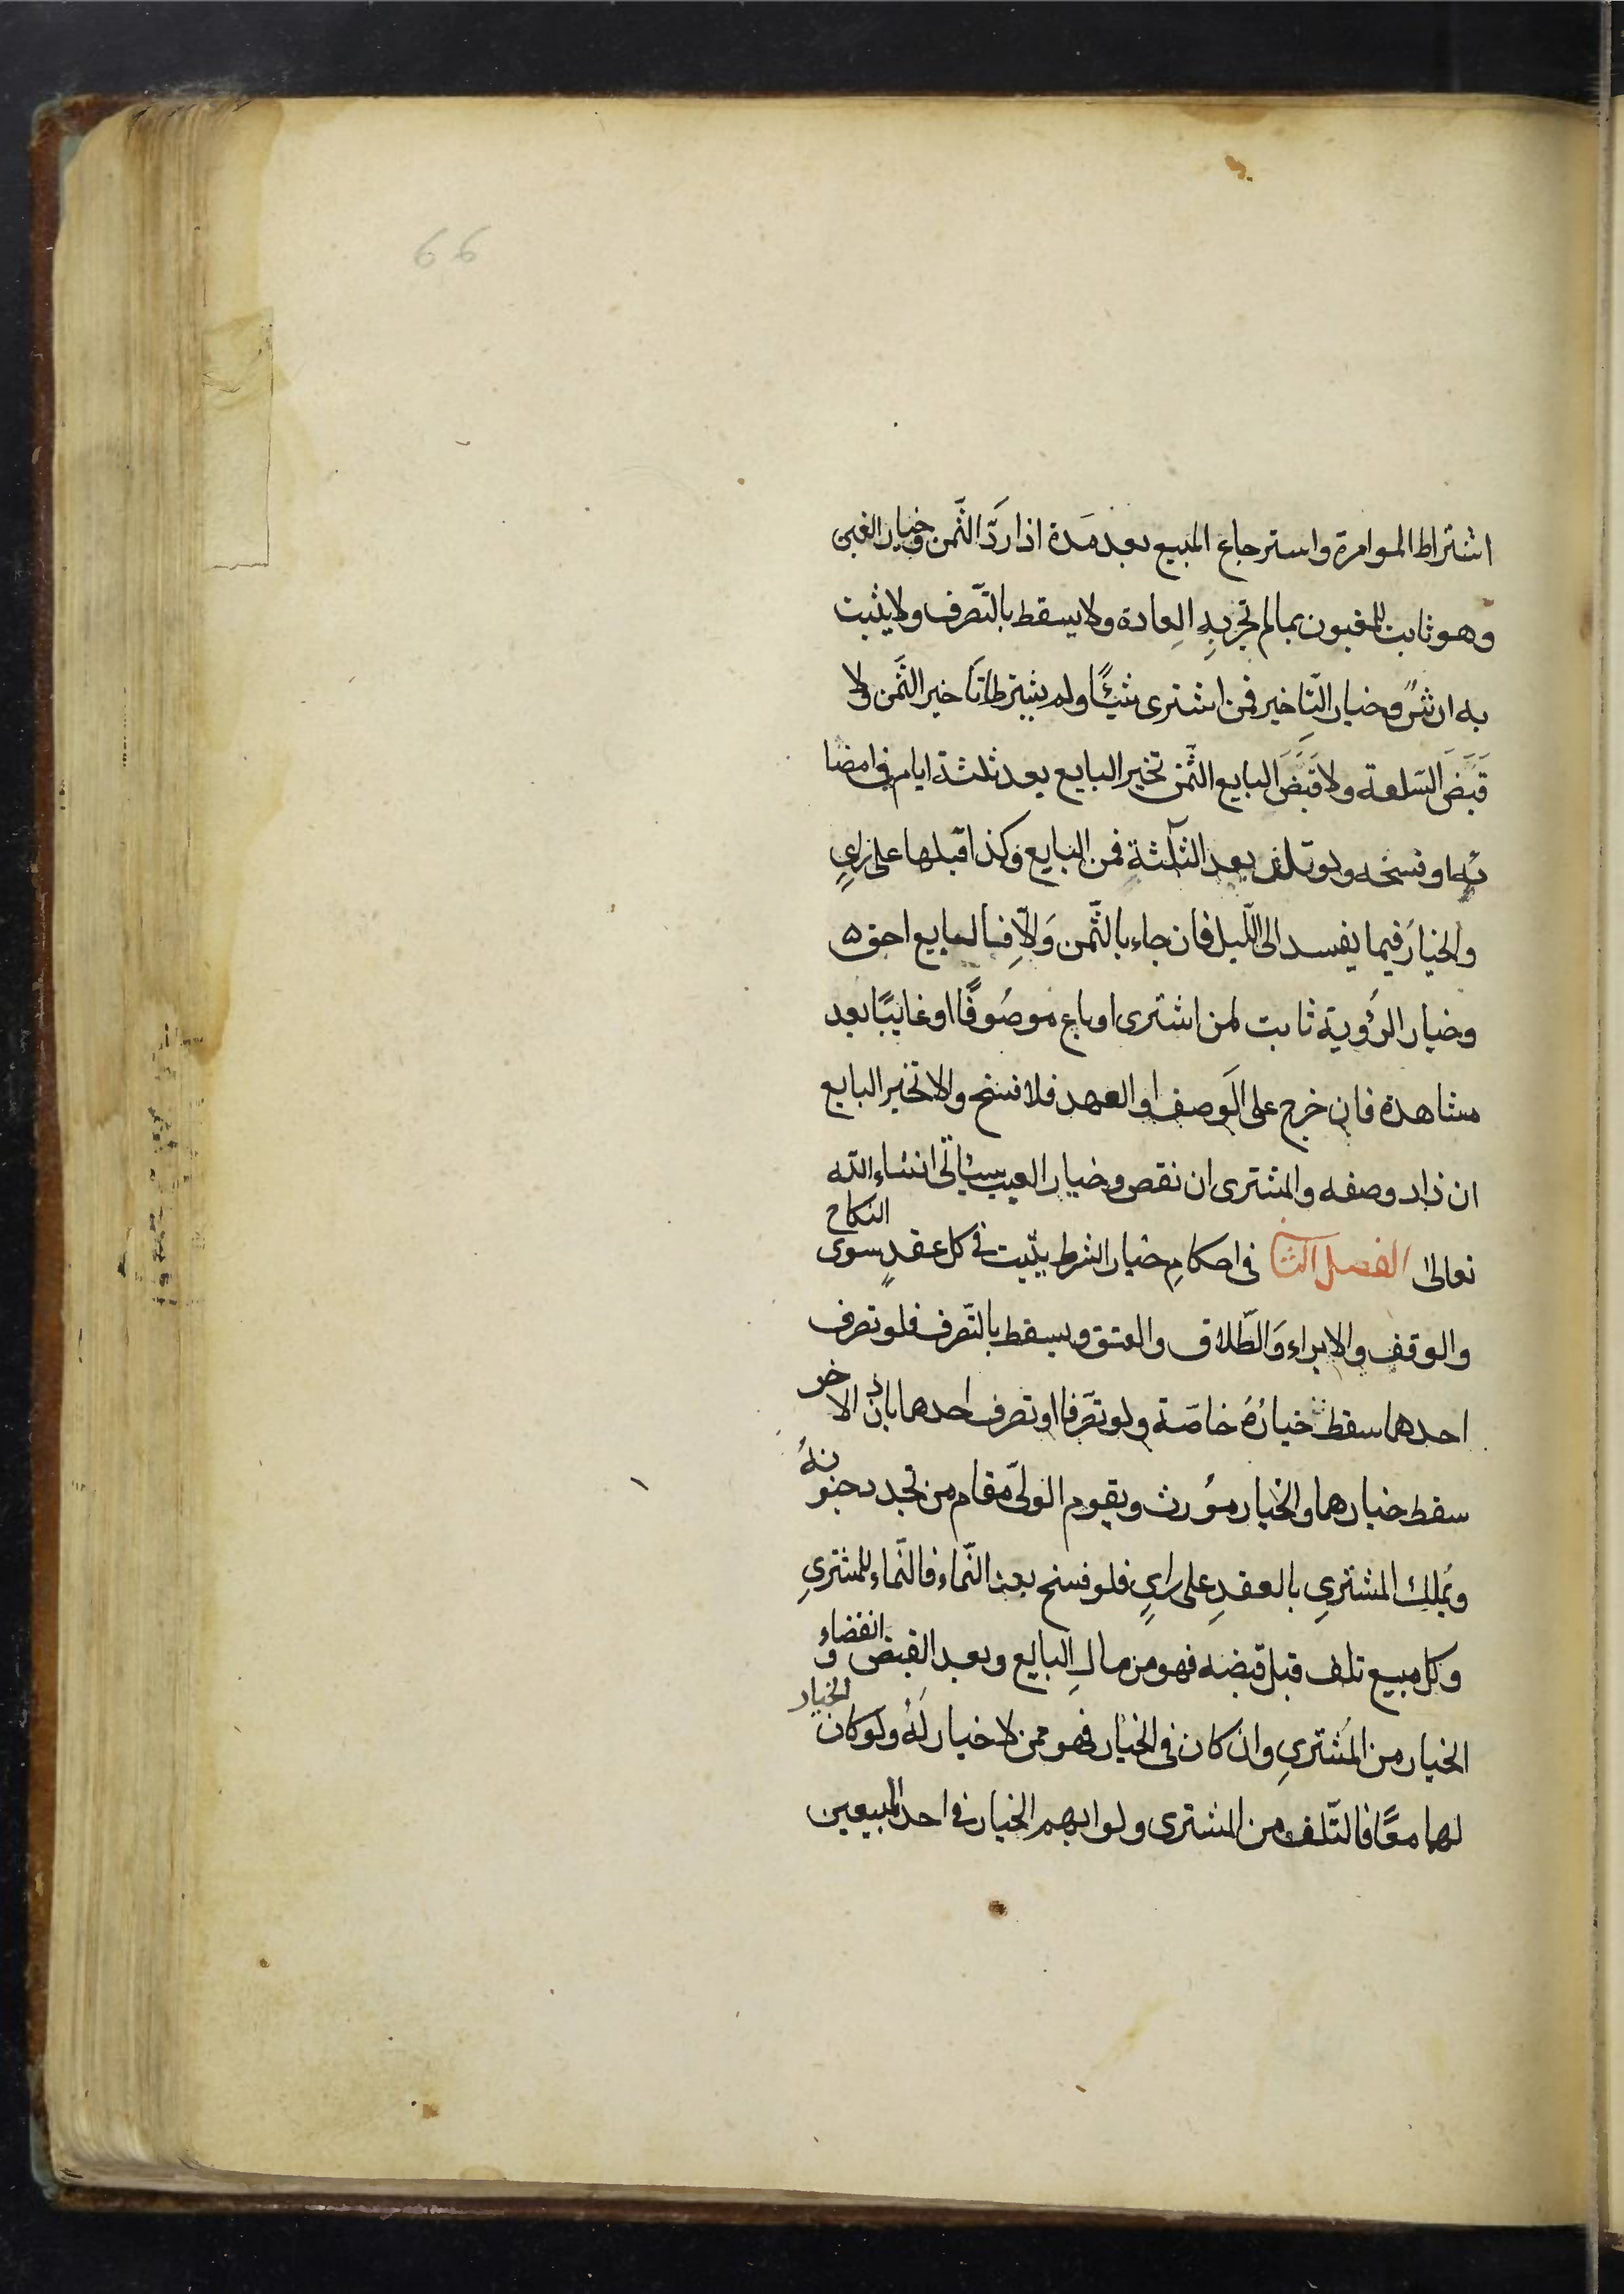 66
اشتراط الموامرة واسترجاع المبيع بعد مَدة اذا ردَّ الثَّمن وخيار الغبن
وهو ثابت للمغبون بما لم تجرِ بِهِ العِادة ولا يسقط بالتّصرف ولا يثبت
به ارشٌ وخيار التّاِخير فمن اشترى شيئًا ولم يشترط تاَخير الثَّمن ولا
قبَّضَ السَلعة ولا قَبَّضَ البايع الثَّمن تخير البايع بعد ثلثة ايام في امضا
ئه او فسخه ولو تلف بعد الثّلثةِ فمن البايع وكذا قبلها على رايٍ
والخيارُ فيما يفسد الى اللّيل فان جاء بالثَّمن وَالاّ فالبايع احق ه
وخيار الرُؤية ثابت لمن اشترى او باع موصُوفًا او غايبًا بعد
مشاهدة فان خرج على الوَصف او العهد فلا فسخ والا تخير البايع
ان زاد وصفه والمشترى ان نقص وخيار العيب سياتى انشاء الله
تعالى الفصل الثانى فى احكامِ خيار الشرط يثبت فى كل عقدٍ سوى النكاح
والوقف والابراء وَالطّلاق والعتق ويسقط بالتّصرف فلو تصرف
احدهما سقط خيارُهُ خاصَة ولو تصّرفا او تصرف احدهما باذن الاخر
سقط خيارهما والخيار مؤرث ويقوم الولىّ مقام من تجدد جنونهُ
ويُملك المشتري بالعقدِ على رايٍ فلو فسخ بعد النَّماء فالنَّماء للمشتري
وكل مبيع تلف قبل قبضه فهو من مالِ البايع وبعد القبض وانقضاء
الخيار من المُشتري وان كان فى الخيار فهو ممن لا خيار لَهُ ولو كان الخيار
لهما معًا فالتّلف من المشترى ولو ابهم الخيار فى احد المبيعين